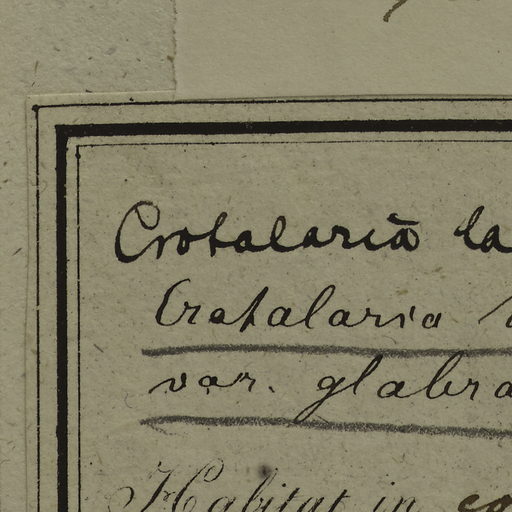 Crotalaria la
Crotalaria
var. glabra
Habitat in co